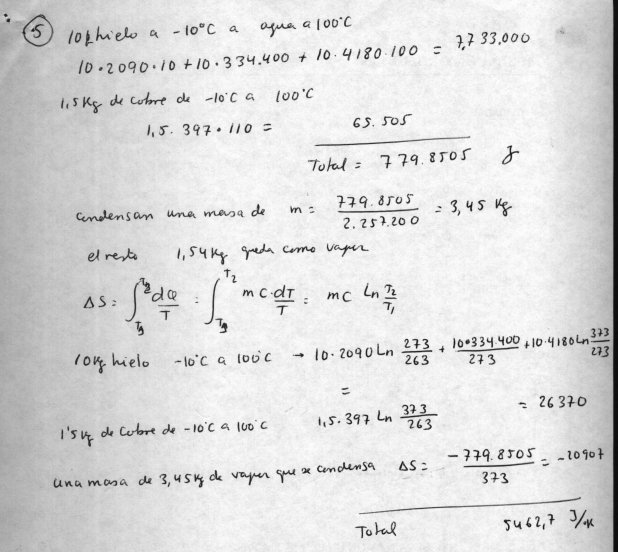 5 10kg hielo a -10°C a agua a 100°C
10.2090.10+10.334.400 + 10.4180.100 = 7,733.000
1,5Kg de cobre de -10°C a 100°C
1,5. 397.110 = 65.505
Total = 779.8505 J
Condensan una masa de m = 779.8505 / 2.257.200 = 3,45 Kg
el resto 1,54Kg queda como vapor
ΔS = ∫ dQ/T = ∫ m c.dT/T = mc Ln T2/T1
10Kg hielo -10°C a 100°C → 10.2090 Ln 273/263 + 10.334.400/273 + 10.4180 Ln 373/273
=
1'5 Kg de Cobre de -10°C a 100°C 1,5.397 Ln 373/263 = 26370
una masa de 3,45Kg de vapor que se condensa ΔS = -779.8505/373 = -20907
Total 5462,7 J/°K